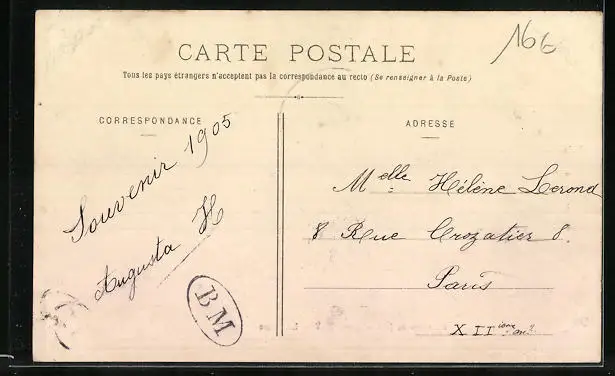 16 €
CARTE POSTALE
Tous les pays étrangers n'acceptent pas la correspondance au recto (Se renseigner à la Poste)
CORRESPONDANCE
Souvenir 1905
Augusta H
BM
ADRESSE
Melle Hélène Lerond
8 Rue Crozatier 8.
Paris
XIIième